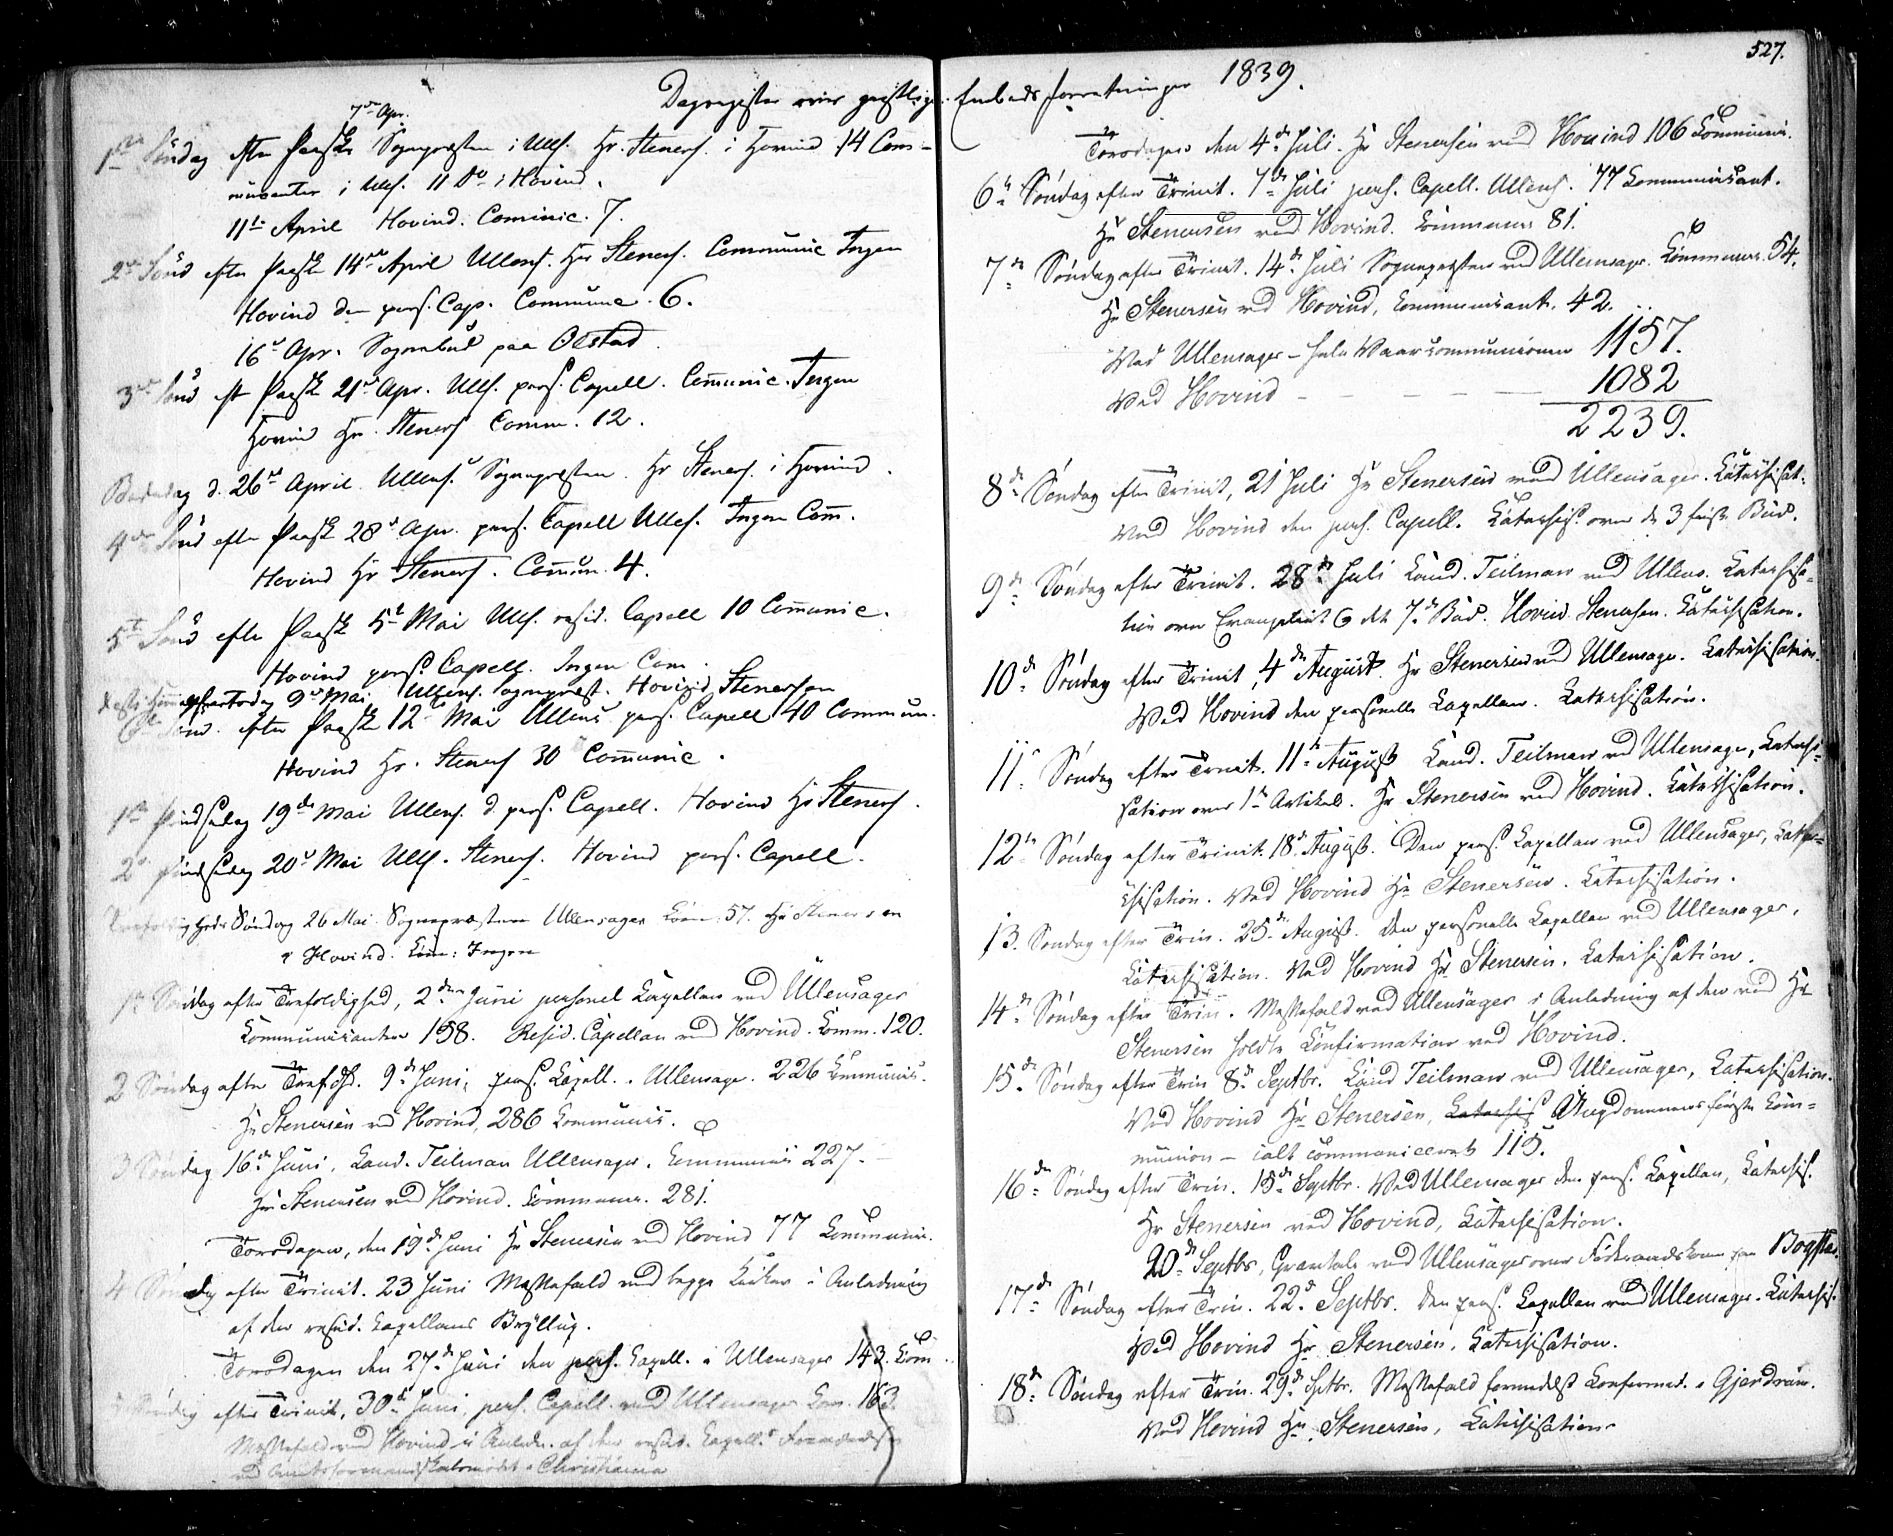 527.
Dagregister over geistlige Embedsforretninger 1839.
7de Apr.
1ste Søndag efter Paaske Sognepræsten i Ulls. Hr. Steners. i Hovind 14 Com-
municanter i Ulls. 11 Do i Hovind.
11te April Hovind. Cominic. 7.
2den Sønd efter Paaske 14de April Ullens. Hr Steners. Communic Ingen
Hovind den pers. Cap. Commune. 6.
16de Apr. Sognebud paa Olstad
3die Sønd eft Paask 21de Apr. Ulls. pers. Capell. Comunic. Ingen
Hovin Hr. Steners Comm. 12.
Bededag d. 26de April Ullens. Sognepræsten. Hr Steners. i Hovind.
4de Sønd efter Paask 28de Apr. pers. Capell Ulles. Ingen Com.
Hovind Hr Steners. Comun. 4.
5te Sønd efter Paask 5te Mai Ulls. resid. Capell 10 Comunic.
Hovind pers. Capell. Ingen Com.
Christi Himmelfartsdag 9de Mai Ullens. Sognepræst. Hovind Stenersen
6te Sønd. efter Paaske 12te Mai Ullens pers. Capell 40 Commun.
Hovind Hr. Steners 30 Comunic.
1ste Pindsedag 19de Mai Ullens. d pers. Capell. Hovind Hr Steners.
2den Pindsedag 20de Mai Ulls. Steners. Hovind pers. Capell.
Trefoldigheds Søndag 26 Mai Sognepræsten Ullensager Com: 57. Hr Stenersen
i Hovind. Com: Ingen
1ste Søndag efter Trefoldighed, 2den Juni personel Capellan ved Ullensager
Kommunicanter 158. Resid. Capellan ved Hovind. Comm. 120.
2 Søndag efter Trefdgh. 9de Juni, pers. Capell. i Ullensager. 226 Communic.
Hr Stenersen ved Hovind, 286 Communic.
3 Søndag 16de Juni, Cand. Teilman Ullensager. Communic 227.
Hr Stenersen ved Hovind. Communic. 281.
Torsdagen, den 19de Juni Hr Stenersen ved Hovind 77 Communic.
4 Søndag efter Trinit. 23 Juni Messefald ved begge Kirker i Anledning
af den resid. Capellans Bryllup.
Torsdagen den 27de Juni den pers. Capell. i Ullensager 143. Com.
Søndag efter Trinit, 30te Juni, pers. Capell. ved Ullensager Com. 163.
Messefald ved Hovind i Anledn. af den resid. Capell.s Fraværelse
ved Amtsformandskabsmødet i Christiania
Torsdagen den 4de Juli. Hr Stenersen ved Hovind 106 Communic.
6te Søndag efter Trinit. 7de Juli pers. Capell. Ullens. 77 Communicant.
Hr Stenersen ved Hovind. Communic 81.
7de Søndag efter Trinit. 14de Juli Sognepræsten ved Ullensager. Communic. 54.
Hr Stenersen ved Hovind, Communicant. 42.
Ved Ullensager – hele Vaarcommunionen 1157.
Ved Hovind – – – – 1082
2239.
8de Søndag efter Trinit, 21 Juli Hr Stenersen ved Ullensager. Catechisat.
Ved Hovind den pers. Capell. Catechis. over de 3 første Bud.
9de Søndag efter Trinit. 28de Juli Cand. Teilman ved Ullens. Catechisa=
tion over Evangeliet & det 7de Bud. Hovind Stenersen. Catechisation.
10de Søndag efter Trinit, 4de August. Hr Stenersen ved Ullensager. Catechisation.
Ved Hovind den personelle Capellan. Catechisation.
11te Søndag efter Trinit. 11te August Cand. Teilman ved Ullensager, Catechi=
sation over 1ste Artikel. Hr Stenersen ved Hovind. Catechisation.
12te Søndag efter Trinit. 18de August. Den pers. Capellan ved Ullensager, Cate=
chisation. Ved Hovind Hr Stenersen. Catechisation.
13. Søndag efter Trin. 25de August. Den personelle Capellan ved Ullensager,
Catechisation. Ved Hovind Hr Stenersen. Catechisation.
14de Søndag efter Trin. Messefald ved Ullensager i Anledning af den ved Hr
Stenersen holdte Confirmation ved Hovind.
15de Søndag efter Trin 8de Septbr. Cand Teilman ved Ullensager, Catechisation.
Ved Hovind Hr Stenersen, Catechis Ungdommens første Com=
munion – ialt communiceret 115.
16de Søndag efter Trin. 15de Septbr. Ved Ullensager den pers. Capellan, Catechis.
Hr Stenersen ved Hovind, Catechisation.
20de Septbr, Gravtale ved Ullensager over Føderaadskone paa Bogstad.
17de Søndag efter Trin. 22de Septbr. den pers. Capellan ved Ullensager. Catechis.
Ved Hovind Hr Stenersen, Catechisation.
18de Søndag efter Trin. 29de Sptbr. Messefald formedelst Confirmat. i Gjerdrum.
Ved Hovind Hr. Stenersen, Catechisation.